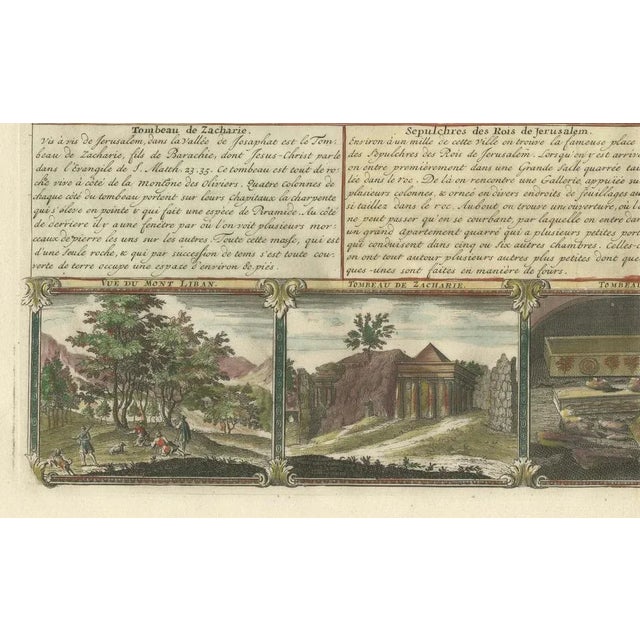 Tombeau de Zacharie.
Vis à vis de Jerusalem, dans la Vallée de Josaphat est le Tom-
beau de Zacharie, fils de Barachie, dont Jesus-Christ parle
dans l'évangile de S. Matth. 23. 35. Ce tombeau est tout de ro-
che vive à côté de la Montâne des Oliviers. Quatre colonnes de
chaque côté du tombeau portent sur leurs chapitaux la charpente
qui s'élève en pointe & qui fait une espéce de Piramide. Au côté
de derriere il y a une fenêtre par où l'on voit plusieurs mor-
ceaux de pierre les uns sur les autres. Toute cette masse, qui est
d'une seule roche, & qui par succession de tems s'est toute cou-
verte de terre occupe une espace d'environ de pies.
Sepulchres des Rois de Jerusalem.
Environ à un mille de cette Ville on trouve la fameuse place
des Sepulchres des Rois de Jerusalem. Lorsqu'on y est arriv
on entre premièrement dans une Grande Salle quarrée tail
lée dans le roc. De là on rencontre une Gallerie appuiée su
plusieurs colonnes, & ornée en divers endroits de feuillages au
si taillez dans le roc. Au bout, on trouve un ouverture, où l'
ne peut passer qu'en se courbant, par laquelle on entre dan
un grand Apartement quarré qui a plusieurs petites port
qui conduisent dans cinq ou Six autres chambres. Celles-
on ont tout autour plusieurs autres plus petites dont que
ques-unes sont faites en manière de fours.
VUE DU MONT LIBAN.
TOMBEAU DE ZACHARIE.
TOMBEA